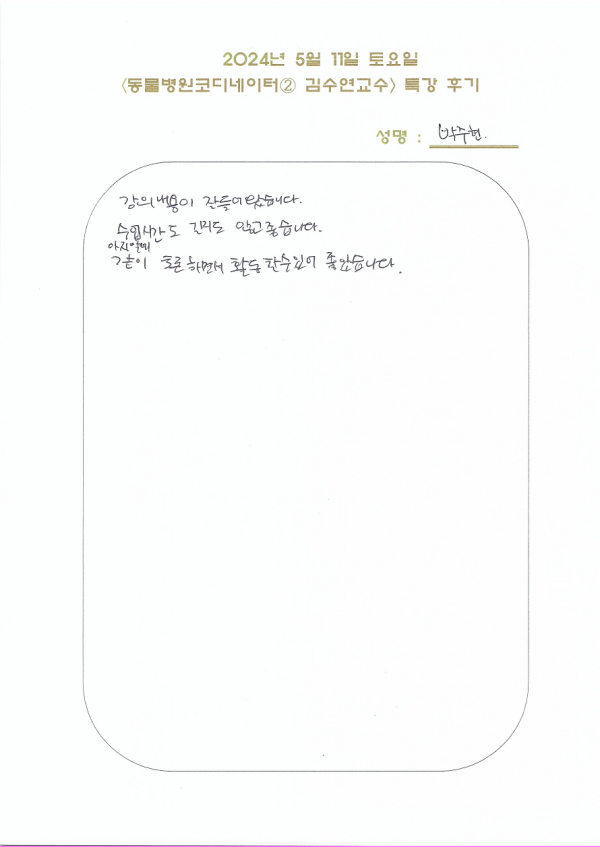 2024년 5월 11일 토요일
<동물병원코디네이터② 김수연교수> 특강 후기
성명 : 박주현.
강의내용이 잘들어왔습니다.
수업시간도 길지도 않고 좋습니다.
같이 토론하면서 활동할수있어 좋았습니다.